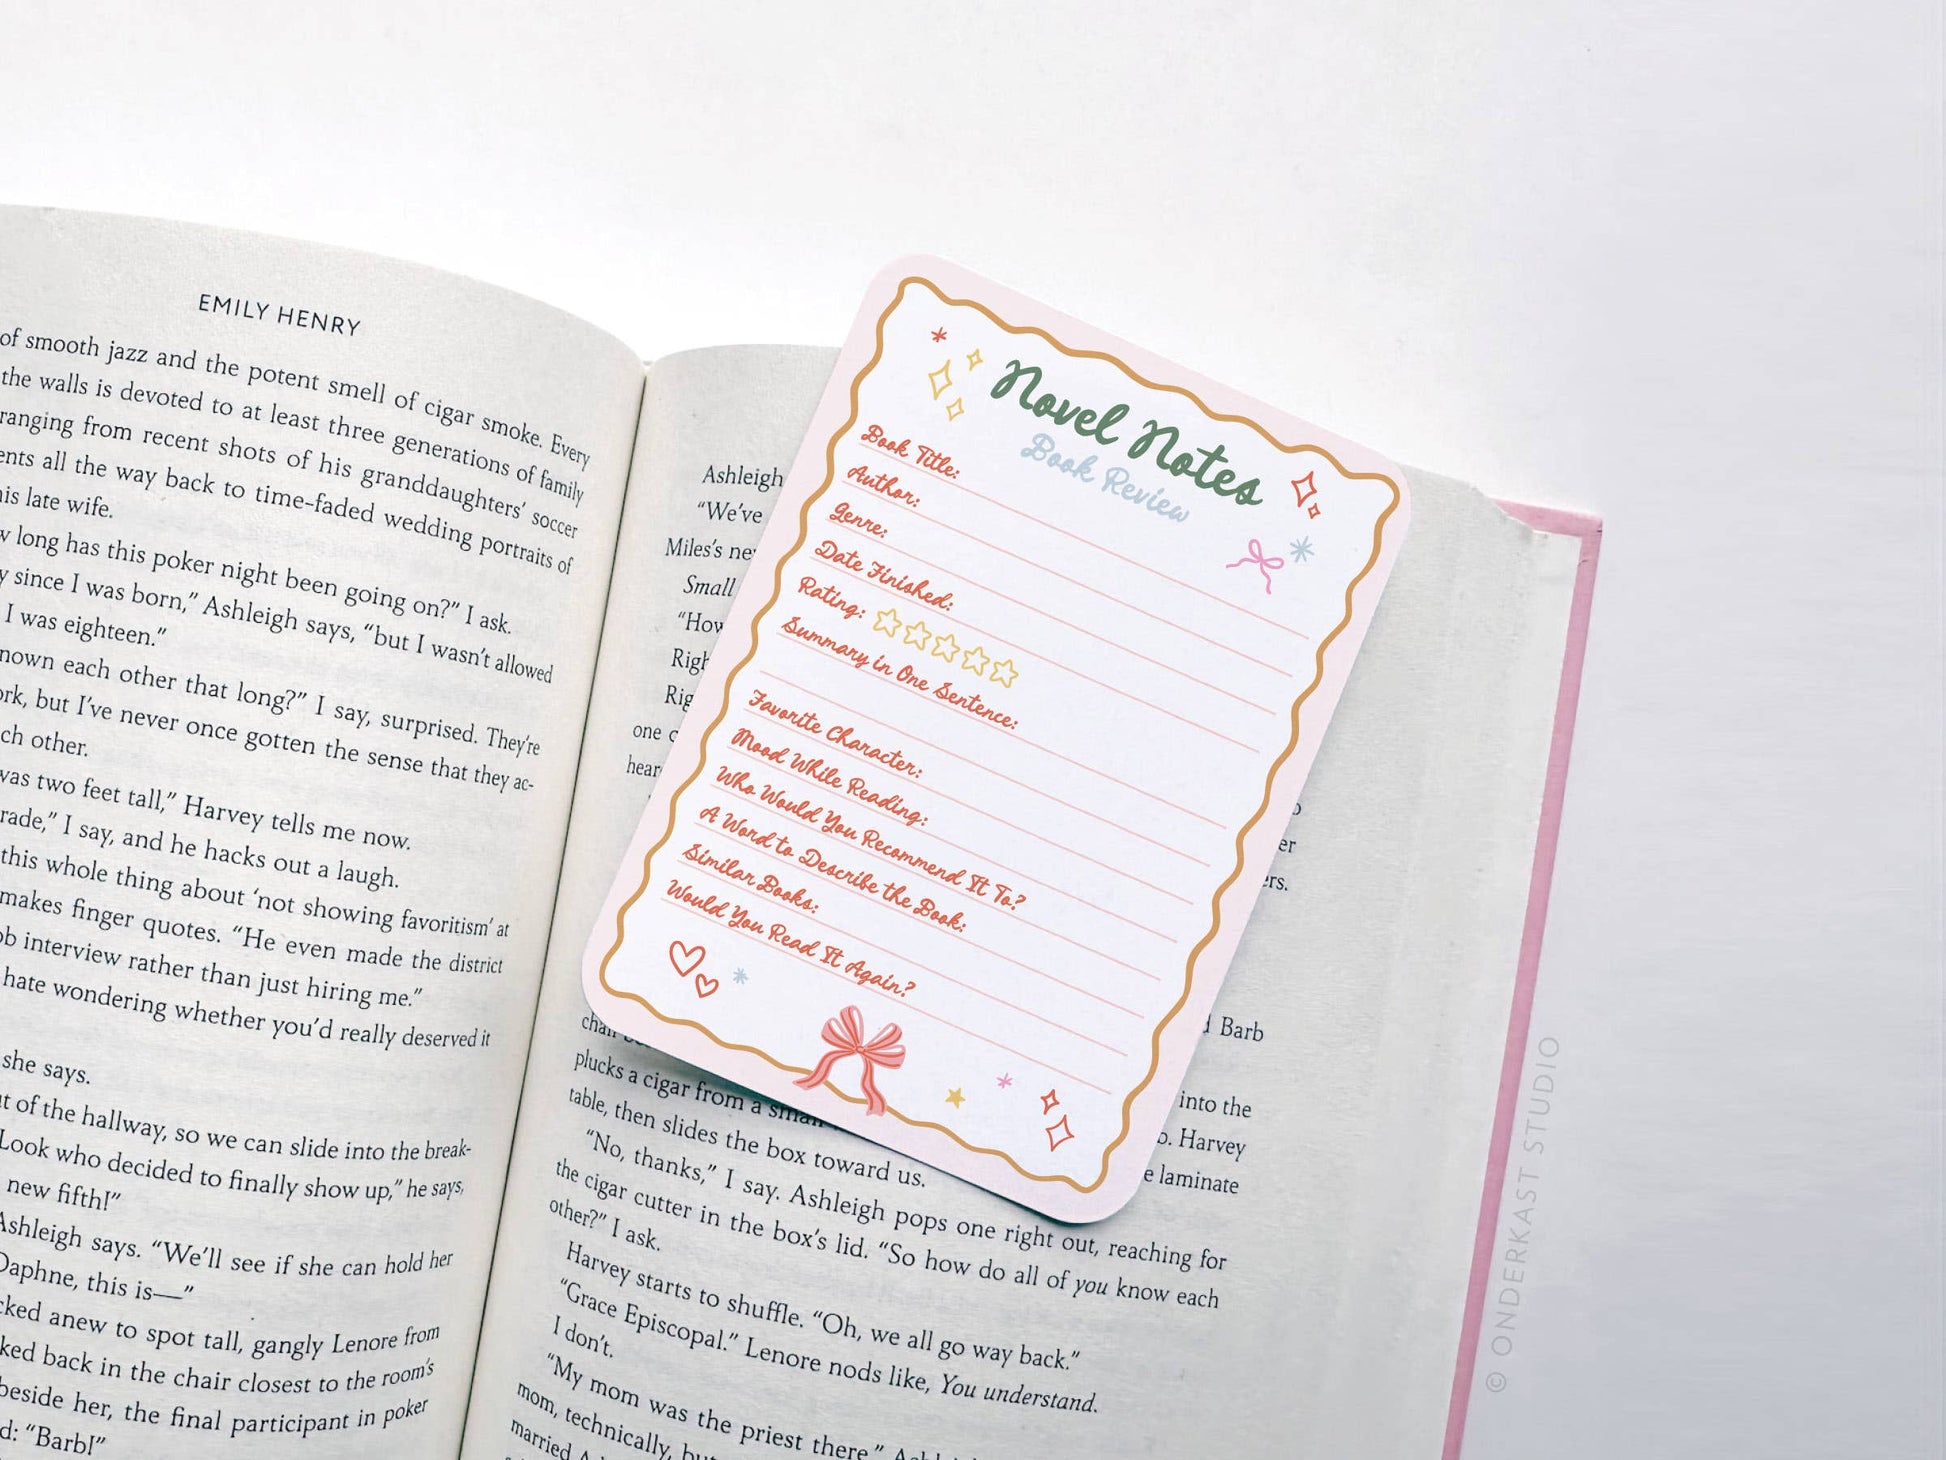 EMILY HENRY
of smooth jazz and the potent smell of cigar smoke. Every
the walls is devoted to at least three generations of family
ranging from recent shots of his granddaughters' soccer
ents all the way back to time-faded wedding portraits of
his late wife.
w long has this poker night been going on?” I ask.
y since I was born,” Ashleigh says, “but I wasn't allowed
I was eighteen.”
nown each other that long?” I say, surprised. They're
ork, but I've never once gotten the sense that they ac-
ch other.
was two feet tall,” Harvey tells me now.
rade,” I say, and he hacks out a laugh.
this whole thing about ‘not showing favoritism’ at
makes finger quotes. “He even made the district
ob interview rather than just hiring me.”
hate wondering whether you'd really deserved it
she says.
ut of the hallway, so we can slide into the break-
Look who decided to finally show up,” he says,
new fifth!”
Ashleigh says. “We'll see if she can hold her
Daphne, this is—”
cked anew to spot tall, gangly Lenore from
ked back in the chair closest to the room's
beside her, the final participant in poker
d: “Barb!”
Ashleigh
“We've
Miles's new
Small
“How
Righ
Rig
one
hear
er
ers.
Barb
into the
o. Harvey
e laminate
plucks a cigar from a small
table, then slides the box toward us.
“No, thanks,” I say. Ashleigh pops one right out, reaching for
the cigar cutter in the box's lid. “So how do all of you know each
other?” I ask.
Harvey starts to shuffle. “Oh, we all go way back.”
“Grace Episcopal.” Lenore nods like, You understand.
I don't.
“My mom was the priest there.”
mom, technically, but
married
Novel Notes
Book Review
Book Title:
Author:
Genre:
Date Finished:
Rating:
Summary in One Sentence:
Favorite Character:
Mood While Reading:
Who Would You Recommend It To?
A Word to Describe the Book:
Similar Books:
Would You Read It Again?
© ONDERKAST STUDIO